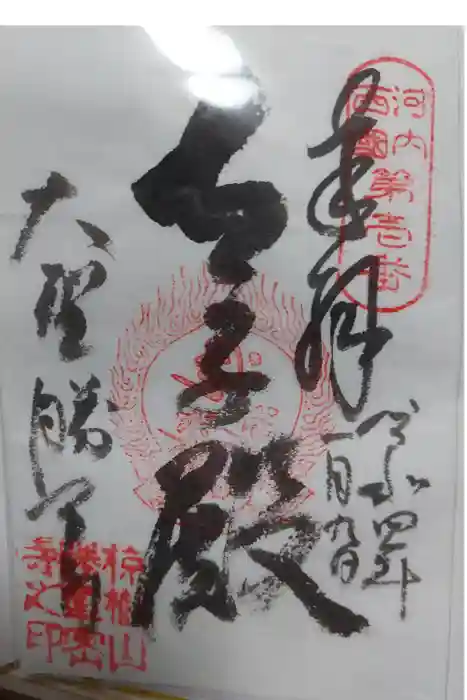 河内
西國
第壱番
奉拝
令和四年
一月九日
殿
大聖勝軍寺
椋樹山
勝軍密
寺之印